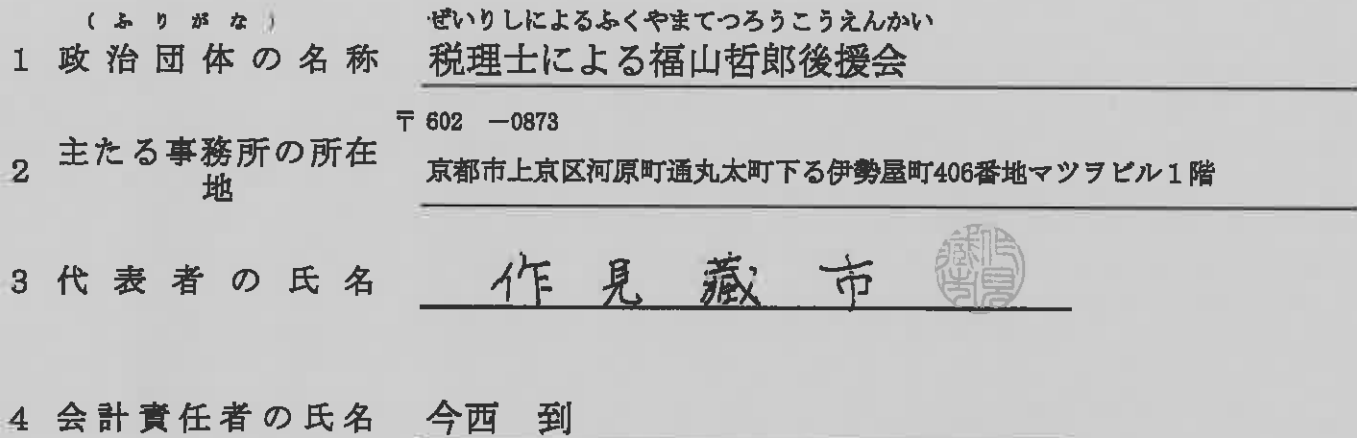 （ふりがな）
ぜいりしによるふくやまてつろうこうえんかい
1 政治団体の名称 税理士による福山哲郎後援会
〒602 －0873
2 主たる事務所の所在地 京都市上京区河原町通丸太町下る伊勢屋町406番地マツヲビル１階
3 代表者の氏名 作見藏市
4 会計責任者の氏名 今西 到